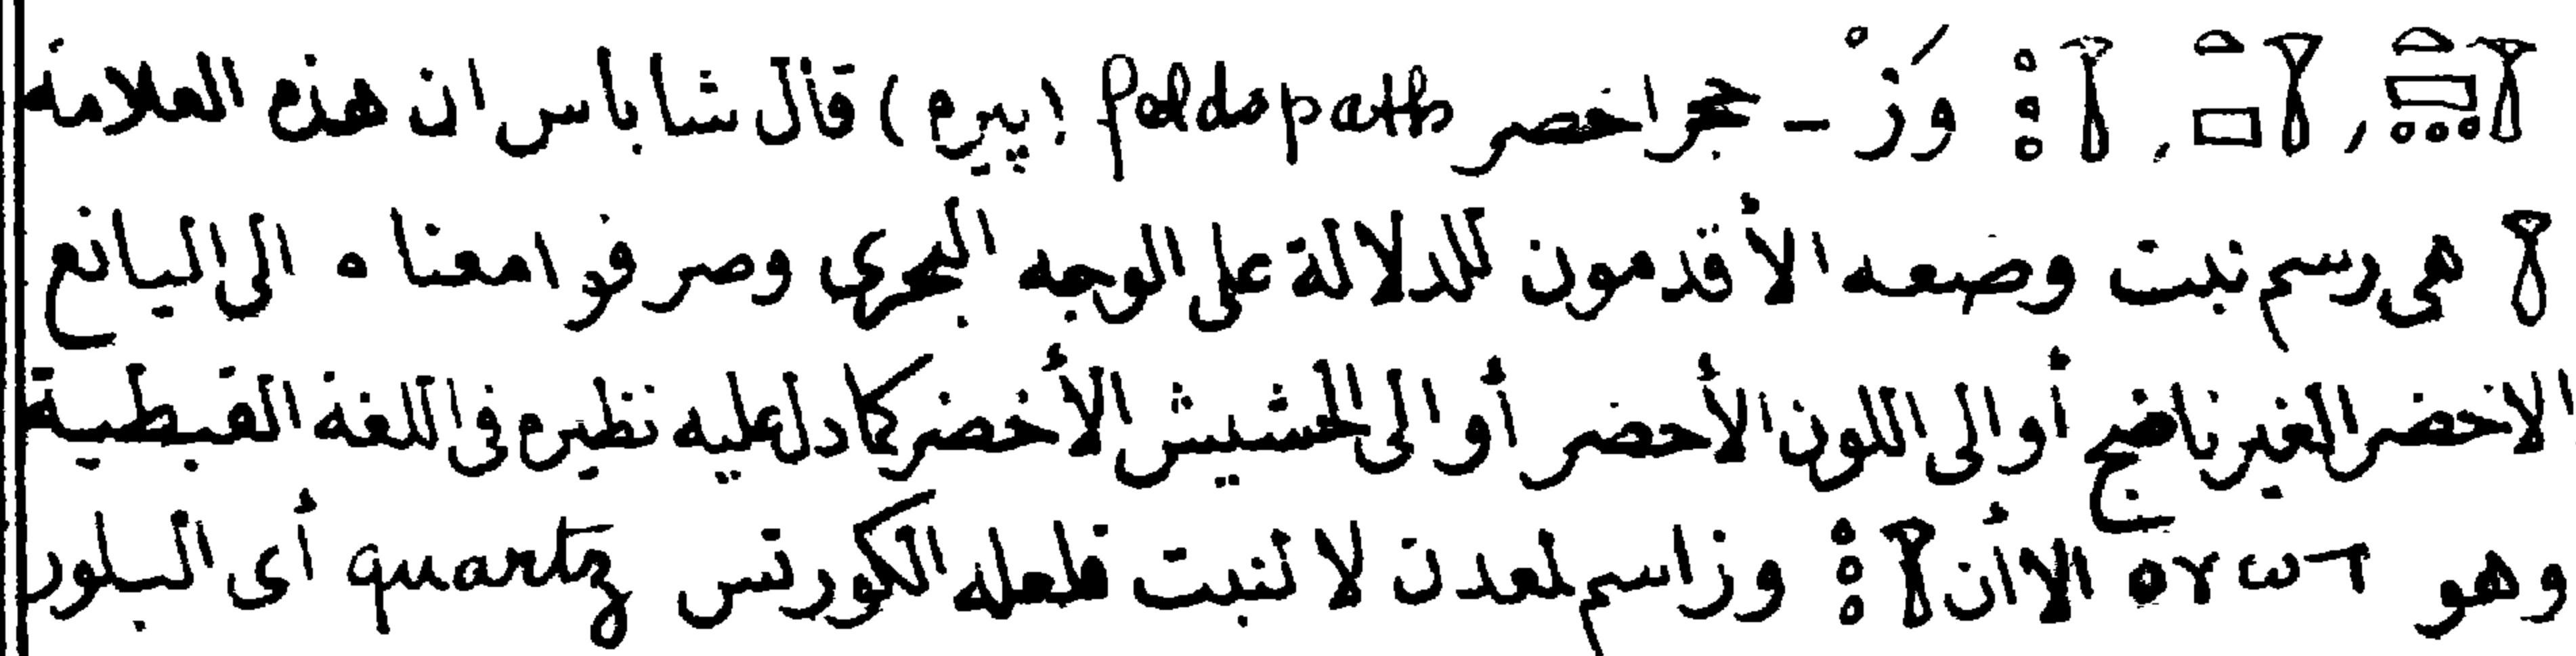 𓇅𓏏𓈙𓏥 , 𓇅𓏏𓈙 , 𓇅𓏥 وَزْ - حجر اخضر feldspath (پيره) قال شاباس ان هذه العلامة
𓇅 هى رسم نبت وضعه الأقدمون للدلالة على الوجه البحرى وصرفوا معناه الى اليانع
الاخضر الغير ناضج أو الى اللون الأحضر أو الى الحشيش الأخضر كما دل عليه نظيره فى اللغة القبطية
وهو ⲟⲩⲱⲧ الا أن 𓇅𓏥 وز اسم لمعدن لا لنبت فلعله الكورتس quartz أى البلور